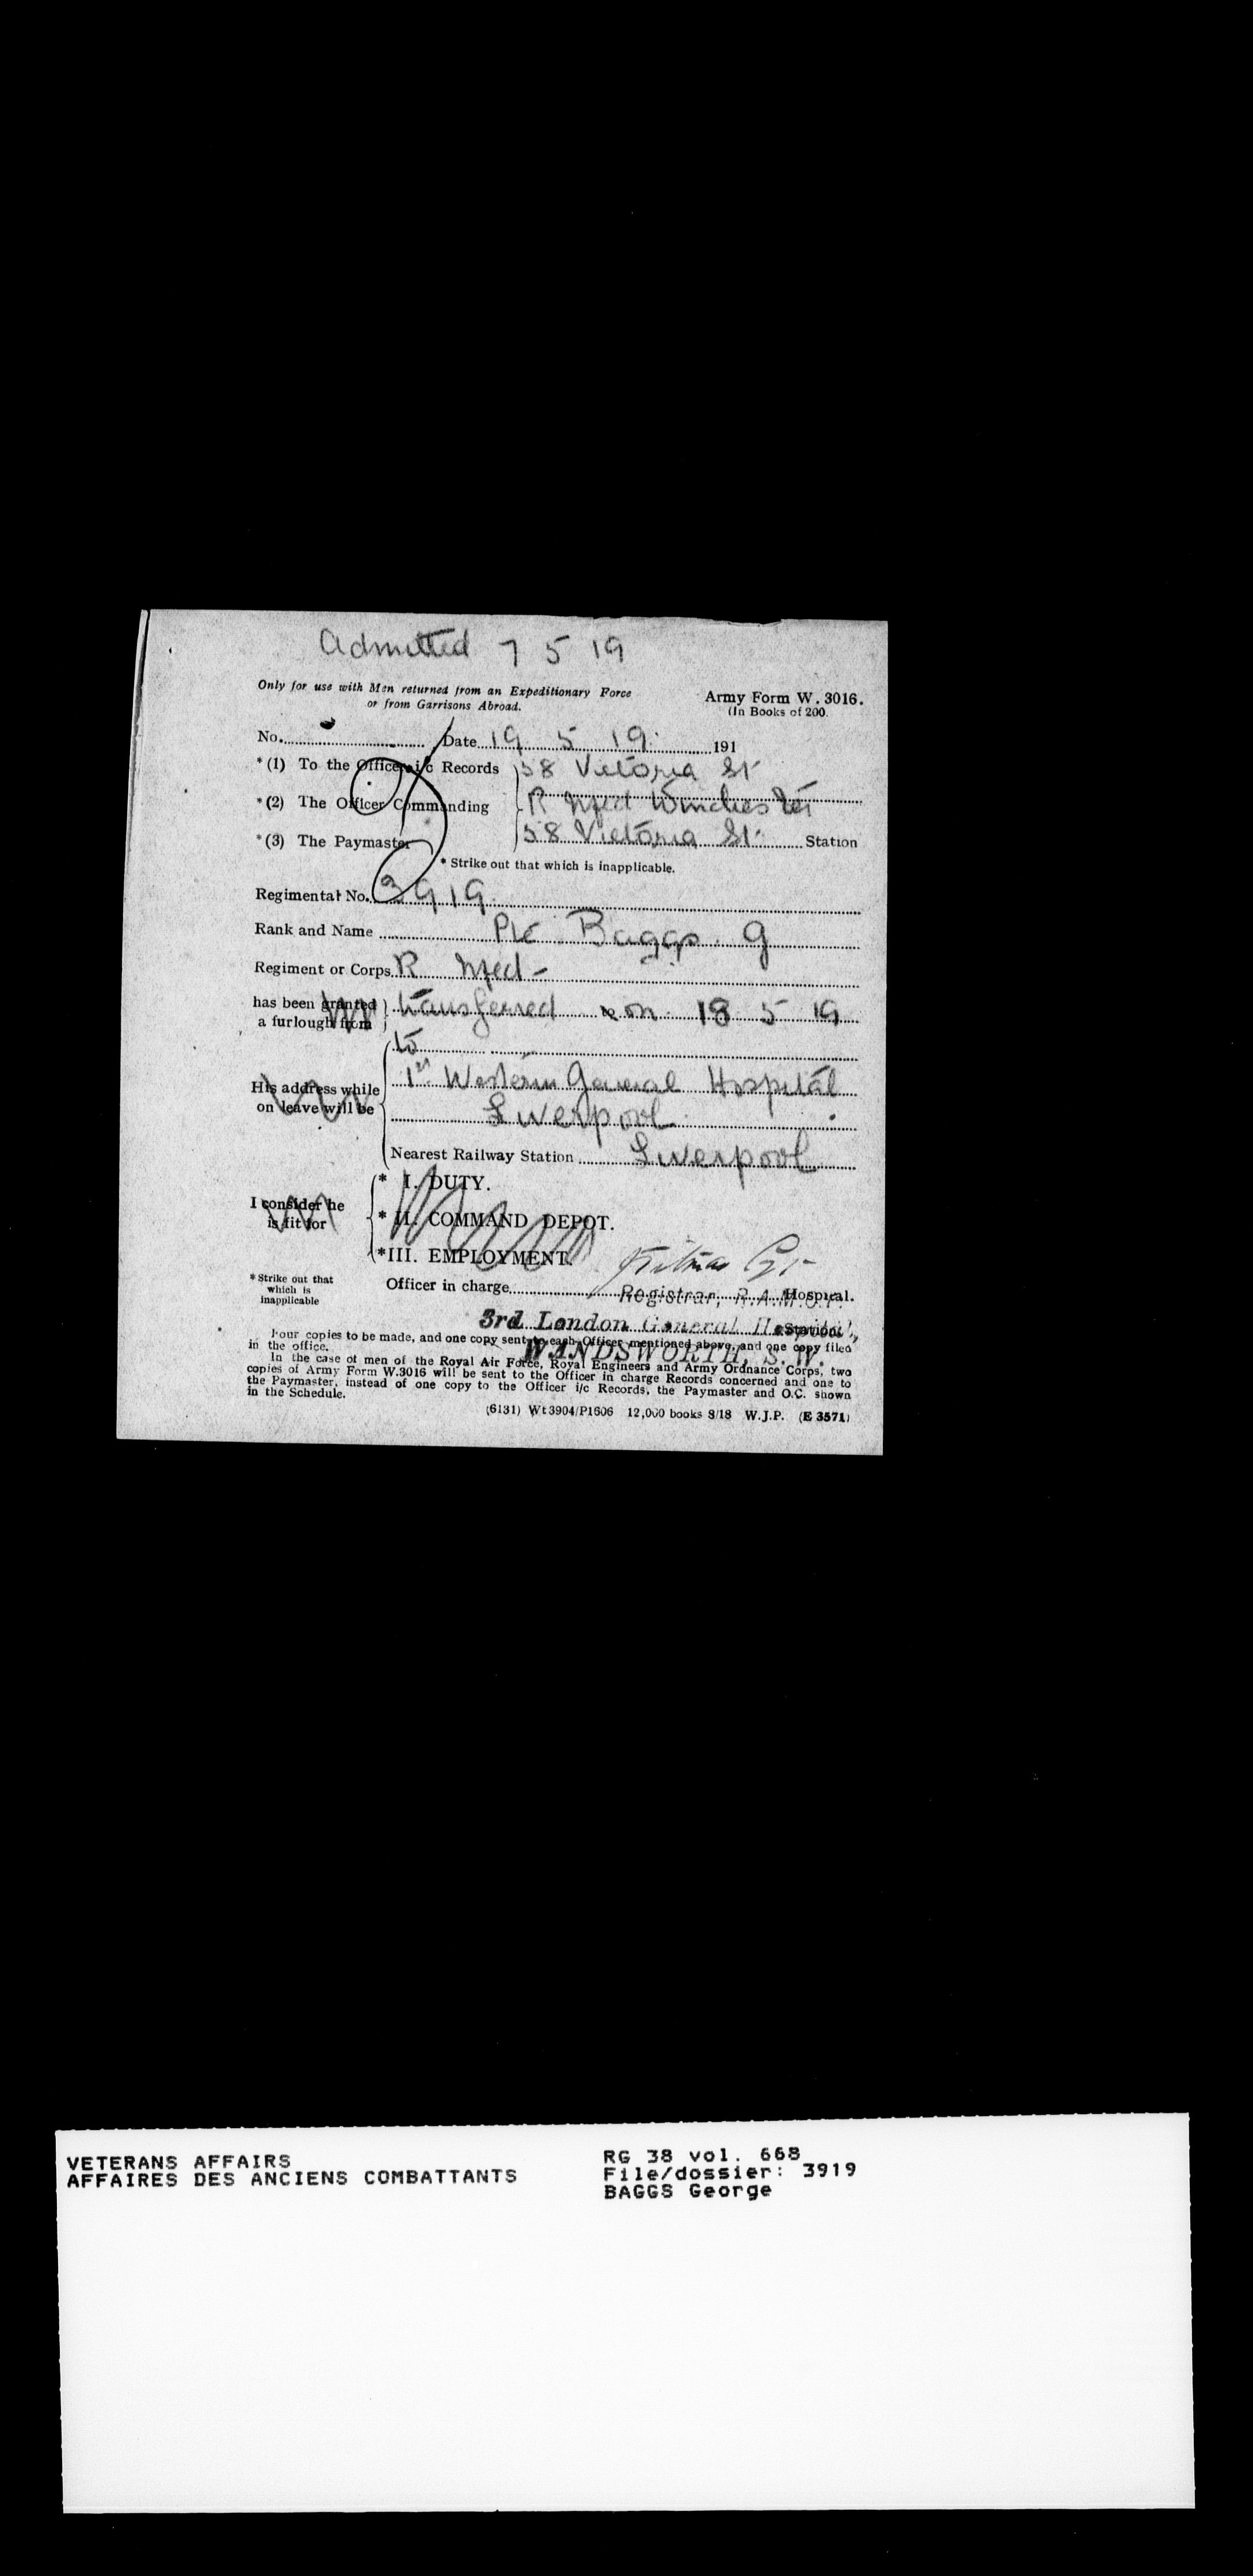 Admitted 7 5 19
Only for use with Men returned from an Expeditionary Force
or from Garrisons Abroad.
Army Form W. 3016.
(In Books of 200.
No. Date 19 5 19. 191
*(1) To the Officer i/c Records 58 Victoria St
*(2) The Officer Commanding R Nfld Winchester
*(3) The Paymaster 58 Victoria St. Station
* Strike out that which is inapplicable.
Regimental No. 3919.
Rank and Name Pte Baggs. G
Regiment or Corps R Nfld -
has been granted
a furlough from
transferred on 18 5 19
to
His address while
on leave will be
1st Western General Hospital
Liverpool
Nearest Railway Station Liverpool
I consider he
is fit for
* I. DUTY.
* II. COMMAND DEPOT.
*III. EMPLOYMENT.
* Strike out that
which is
inapplicable
Officer in charge Hospital.
Registrar, R.A.M.C.T.
3rd London General Hospital, Station
WANDSWORTH, S.W.
Four copies to be made, and one copy sent to each Officer mentioned above, and one copy filed
in the office.
In the case of men of the Royal Air Force, Royal Engineers and Army Ordnance Corps, two
copies of Army Form W.3016 will be sent to the Officer in charge Records concerned and one to
the Paymaster, instead of one copy to the Officer i/c Records, the Paymaster and O.C. shown
in the Schedule.
(6131) Wt3904/P1606 12,000 books 8/18 W.J.P. (E 3571)
VETERANS AFFAIRS
AFFAIRES DES ANCIENS COMBATTANTS
RG 38 vol. 668
File/dossier: 3919
BAGGS George